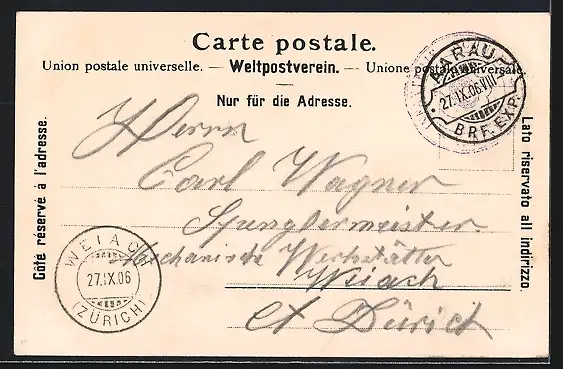 Carte postale.
Union postale universelle. — Weltpostverein. — Unione postale universale.
Nur für die Adresse.
Côté réservé à l'adresse.
Lato riservato all indirizzo.
AARAU
27.IX.06.VIII
BRF. EXP.
Herrn
Carl Wagner
Spenglermeister
Mechanische Werkstätte
Weiach
Ct Zürich
WEIACH
27.IX.06
(ZÜRICH)